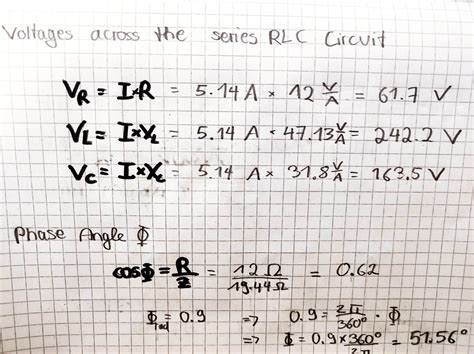 Voltages across the series RLC Circuit
V_R = I×R = 5.14 A × 12 V/A = 61.7 V
V_L = I×X_L = 5.14 A × 47.13 V/A = 242.2 V
V_C = I×X_C = 5.14 A × 31.8 V/A = 163.5 V
Phase Angle Φ
cosΦ = R/Z = 12 Ω / 19.44 Ω = 0.62
Φ_rad = 0.9 => 0.9 = 2π/360° · Φ
=> Φ = 0.9×360° / 2π = 51.56°